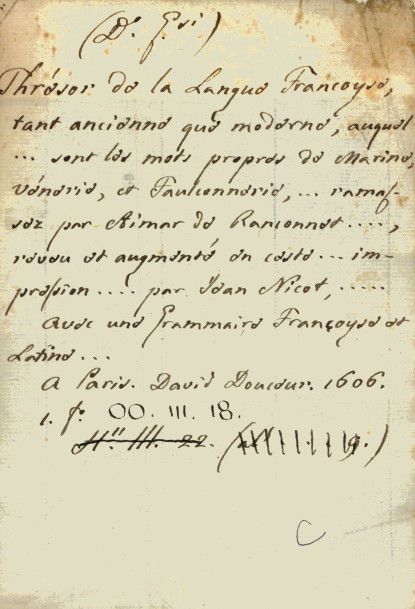 Thrésor de la Langue Françoyse,
tant ancienne que moderne, auquel
... sont les mots propres de Marine,
vénerie, et Faulconnerie, ... ramas-
sez par Aimar de Ranconnet ....,
reveu et augmenté en ceste ... im-
pression .... par Jean Nicot, .....
Avec une Grammaire Françoyse et
Latine ...
A Paris. David Douceur. 1606.
1. f. OO. III. 18.
H." III. 22.
C